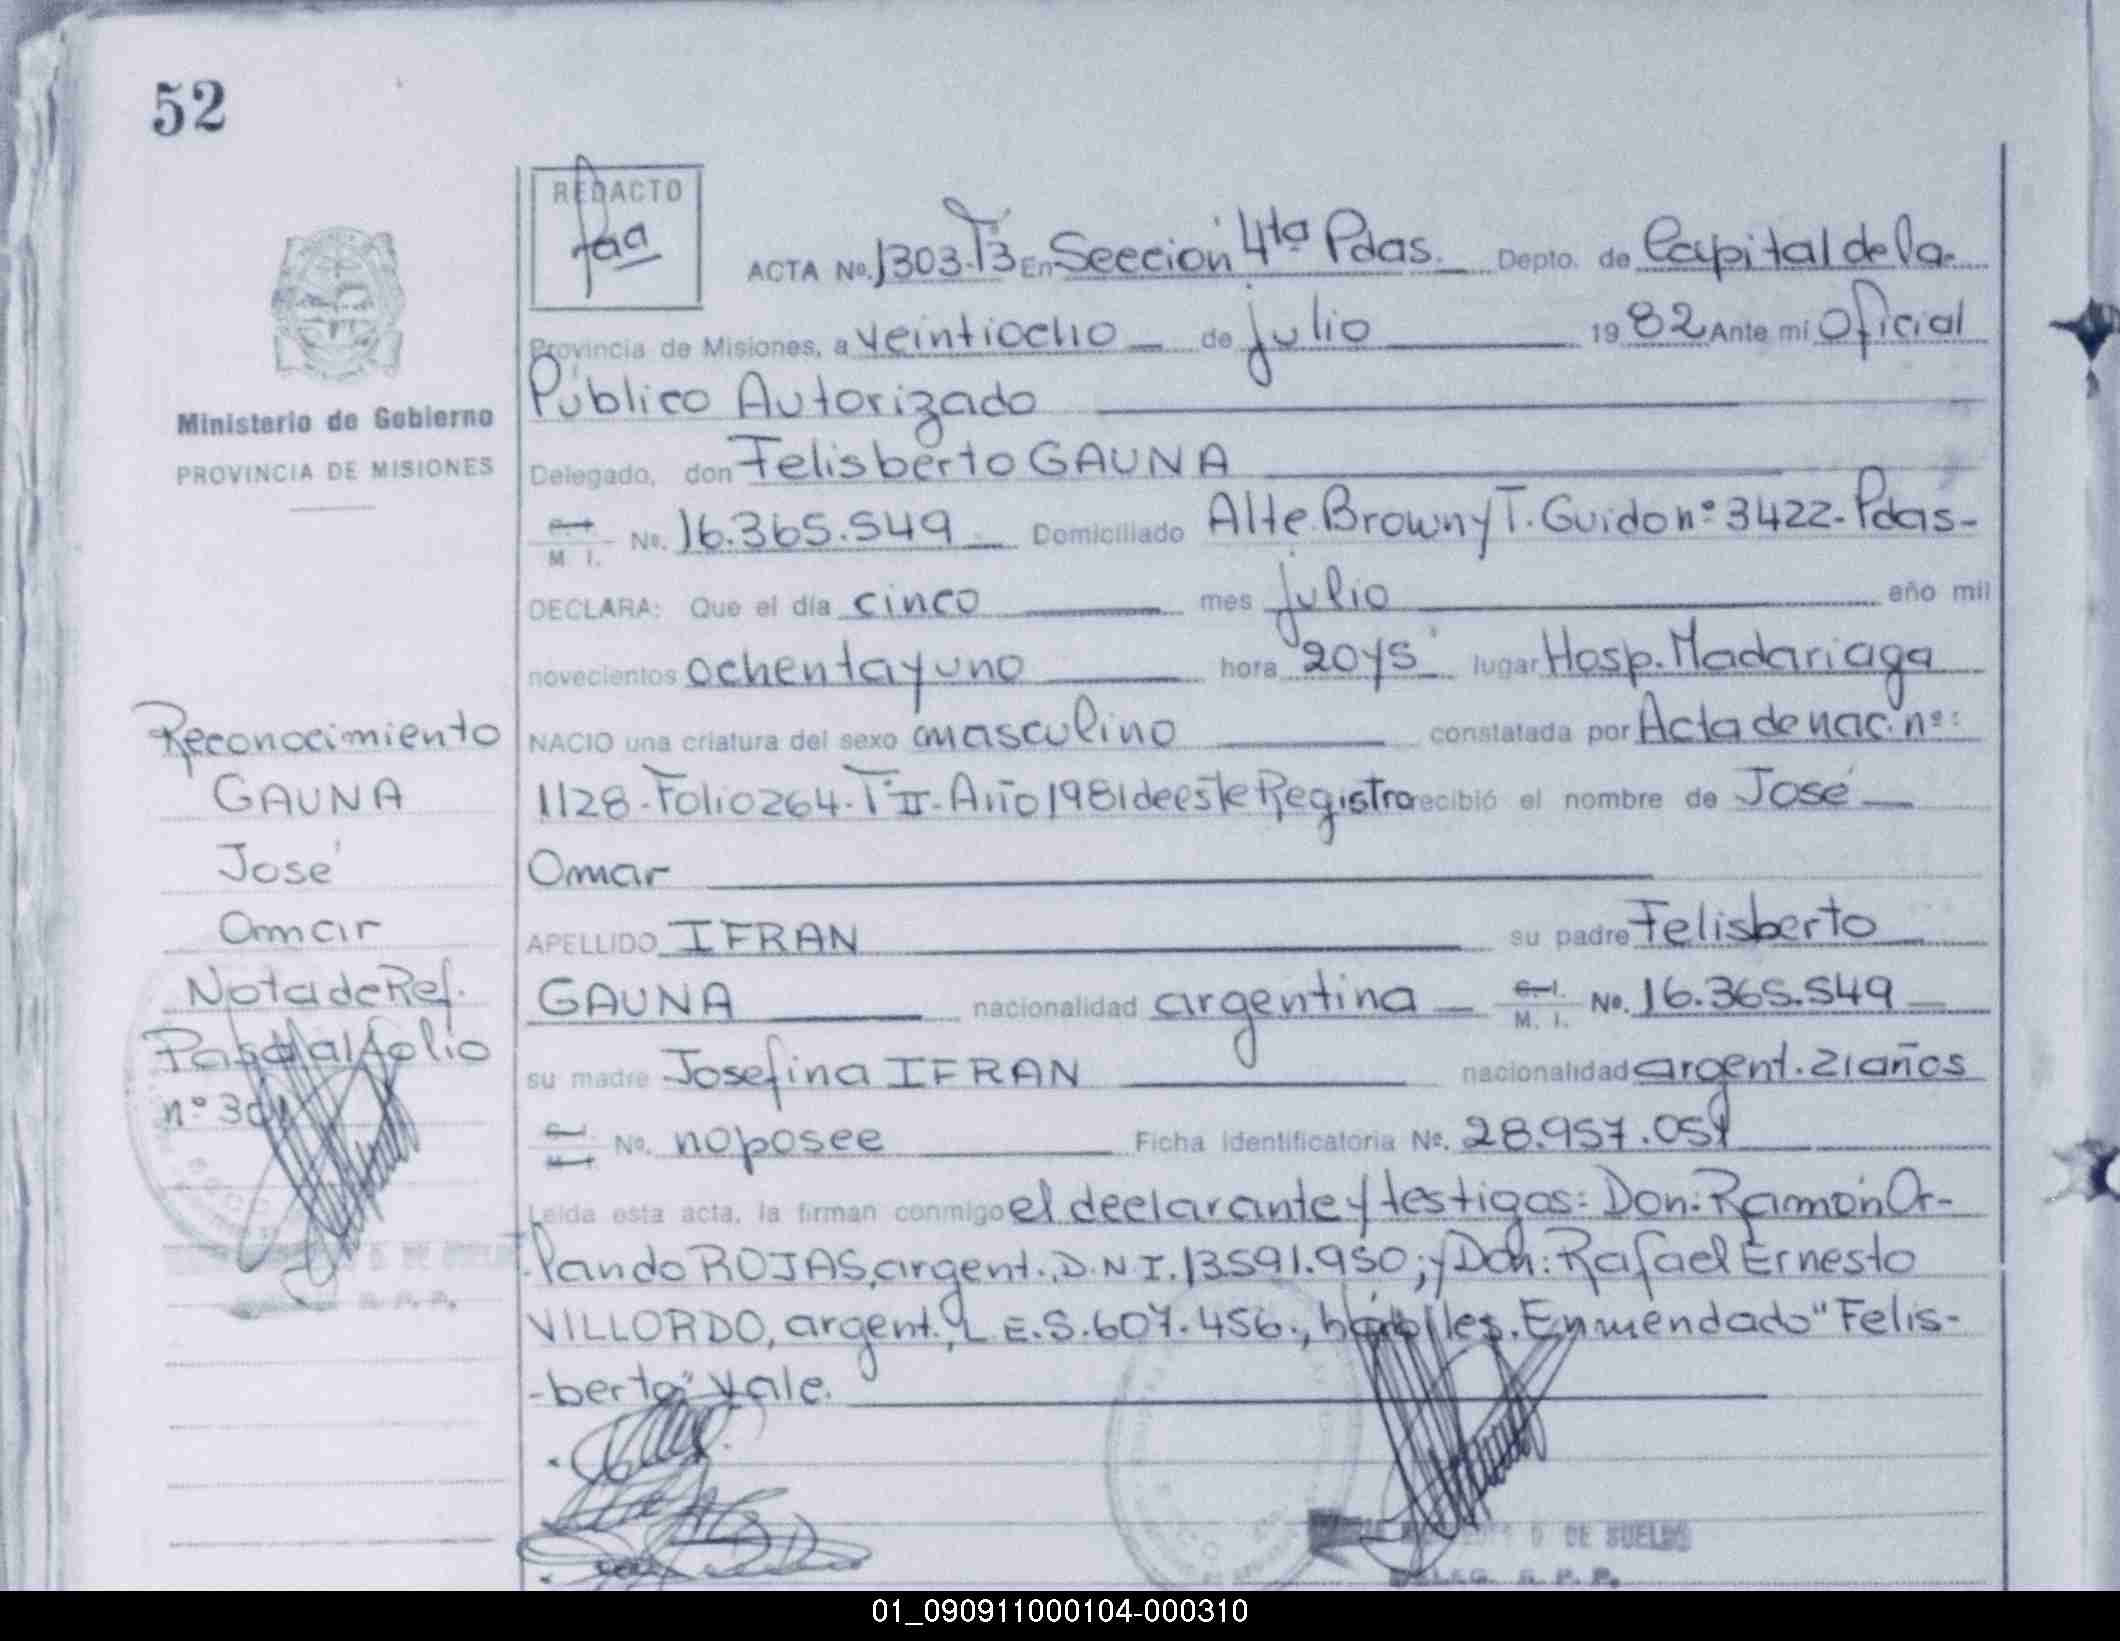 52
REDACTO
ACTA No. 1303. T3 En Sección 4ta Pdas. Depto. de Capital de la
Provincia de Misiones, a veintiocho de julio 1982 Ante mi Oficial
Público Autorizado
Ministerio de Gobierno
PROVINCIA DE MISIONES
Delegado, don Felisberto GAUNA
M. I. No. 16.365.549 Domiciliado Alte. Brown y T. Guido nº 3422- Pdas-
DECLARA: Que el día cinco mes julio año mil
novecientos ochenta y uno hora "20 y 5" lugar Hosp. Madariaga
Reconocimiento
NACIO una criatura del sexo masculino constatada por Acta de nac. nº:
GAUNA
1128-Folio 264-Tº II-Año 1981 de este Registro recibió el nombre de José
José
Omar
Omar
APELLIDO IFRAN su padre Felisberto
Nota de Ref.
GAUNA nacionalidad argentina C. I. M. I. No. 16.365.549
Pasa al folio
su madre Josefina IFRAN nacionalidad argent. 21 años
nº
No. no posee Ficha identificatoria No. 28.957.059
Leida esta acta, la firman conmigo el declarante y testigos: Don: Ramón Or-
-lando ROJAS, argent., D.N.I. 13.591.950; y Don: Rafael Ernesto
VILLORDO, argent., L.E. 5.607.456., hábiles. Enmendado "Felis-
-berto" Vale.
D. DE SUELDO
DELEG. R. P. P.
01_090911000104-000310